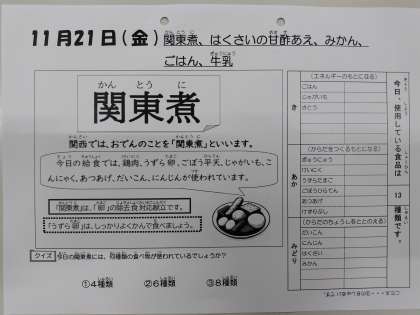 11月21日(金) 関東煮、はくさいの甘酢あえ、みかん、
ごはん、牛乳
かん とう に
関東煮
関西では、おでんのことを「関東煮」といいます。
今日の給食では、鶏肉、うずら卵、ごぼう平天、じゃがいも、こ
んにゃく、あつあげ、だいこん、にんじんが使われています。
「関東煮」は、「卵」の除去食対応献立です。
「うずら卵」は、しっかりよくかんで食べましょう。
クイズ
今日の関東煮には、何種類の食べ物が使われているでしょうか?
①4種類 ②6種類 ③8種類
今日、使用している食品は
13
種類です。
き
(エネルギーのもとになる)
ごはん
じゃがいも
さとう
あか
(からだをつくるもとになる)
ぎゅうにゅう
けいにく
うずらたまご
ごぼうひらてん
あつあげ
けずりぶし
みどり
(からだのちょうしをととのえる)
だいこん
にんじん
はくさい
みかん